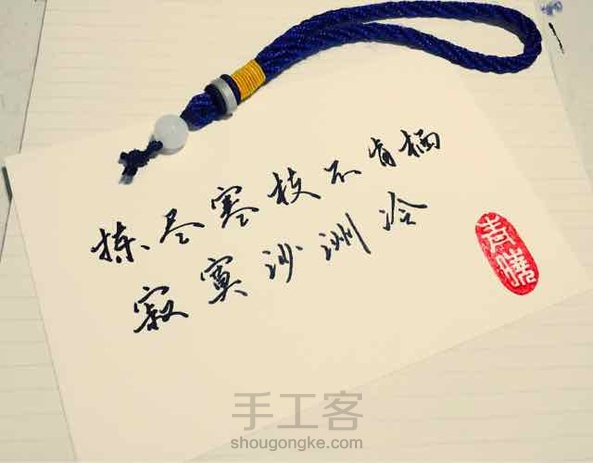 拣尽寒枝不肯栖
寂寞沙洲冷
手工客
shougongke.com